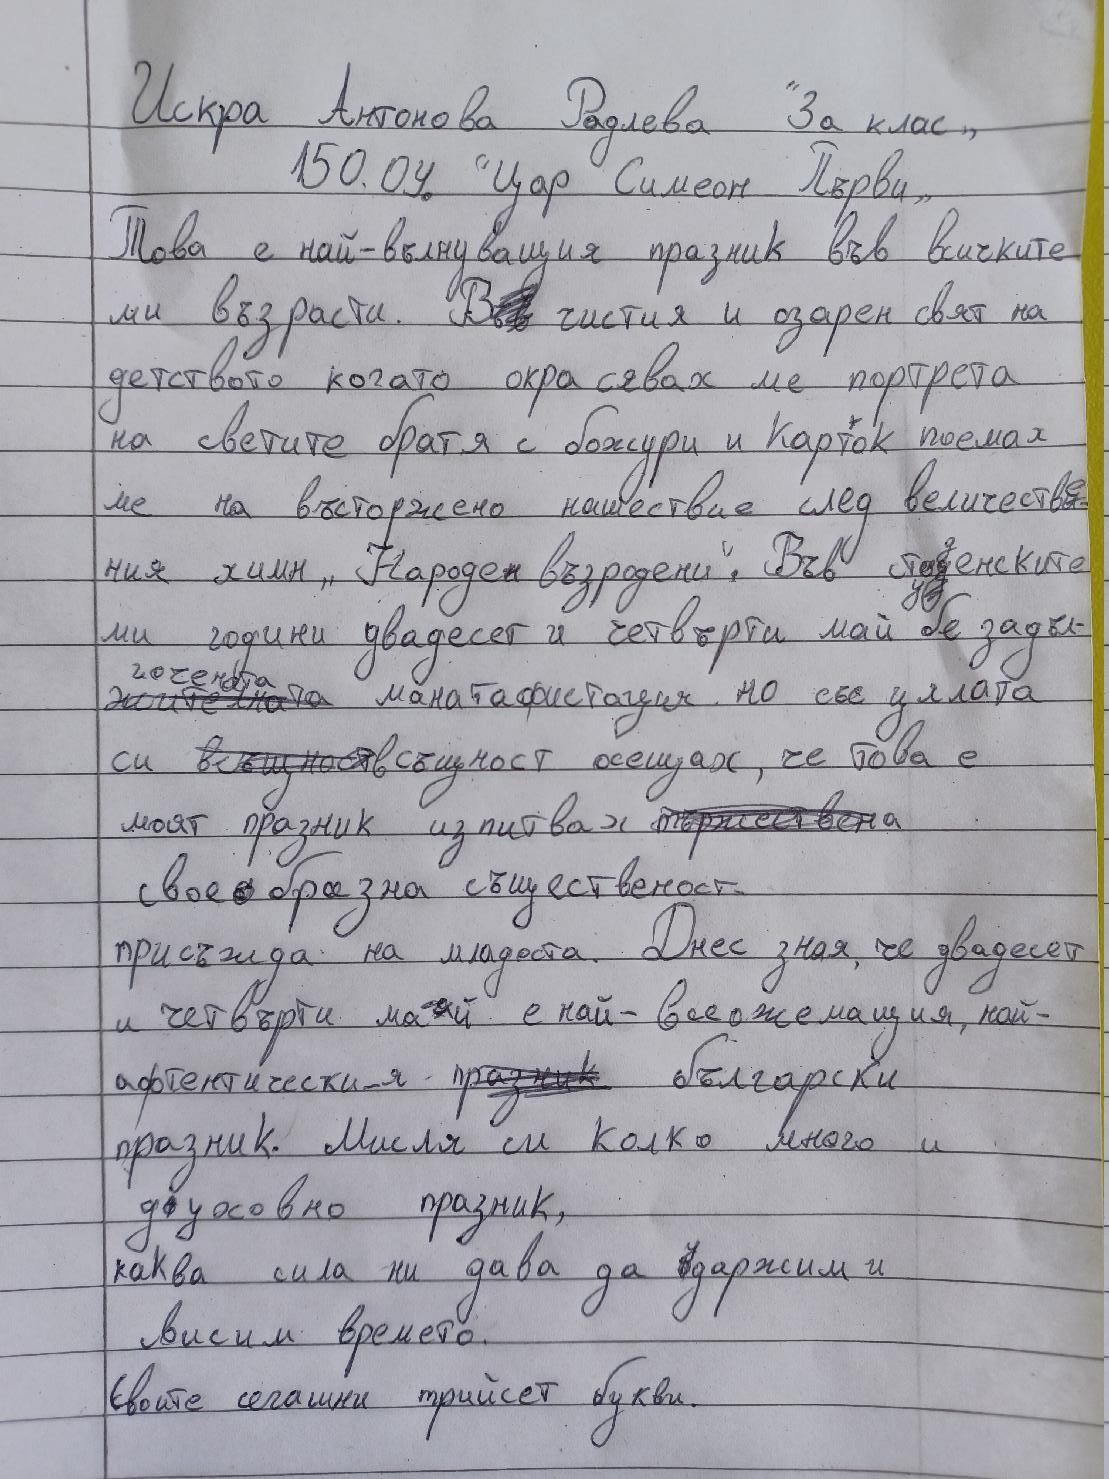 Искра Антонова Радлева "3а клас„
150.ОУ. "Цар Симеон Първи„
Това е най-вълнуващия празник във всичките
ми възрасти. В чистия и озарен свят на
детството когато окрасявах ме портрета
на светите братя с божури и карток поемах
ме на въсторжено нашествие след величестве-
ния химн „Народен възродени". Във студенските
ми години двадесет и четвърти май бе задъл-
гочената манатафистация но със цялата
си всъщност осещах, че това е
моят празник изпитвах
своеобразна същественост
присъжда на младоста. Днес зная, че двадесет
и четвърти май е най-всеожемащия, най-
афтентически-я български
празник. Мисля си колко много и
духовно празник,
каква сила ни дава да удържим и
висим времето.
Своите сегашни трийсет букви.